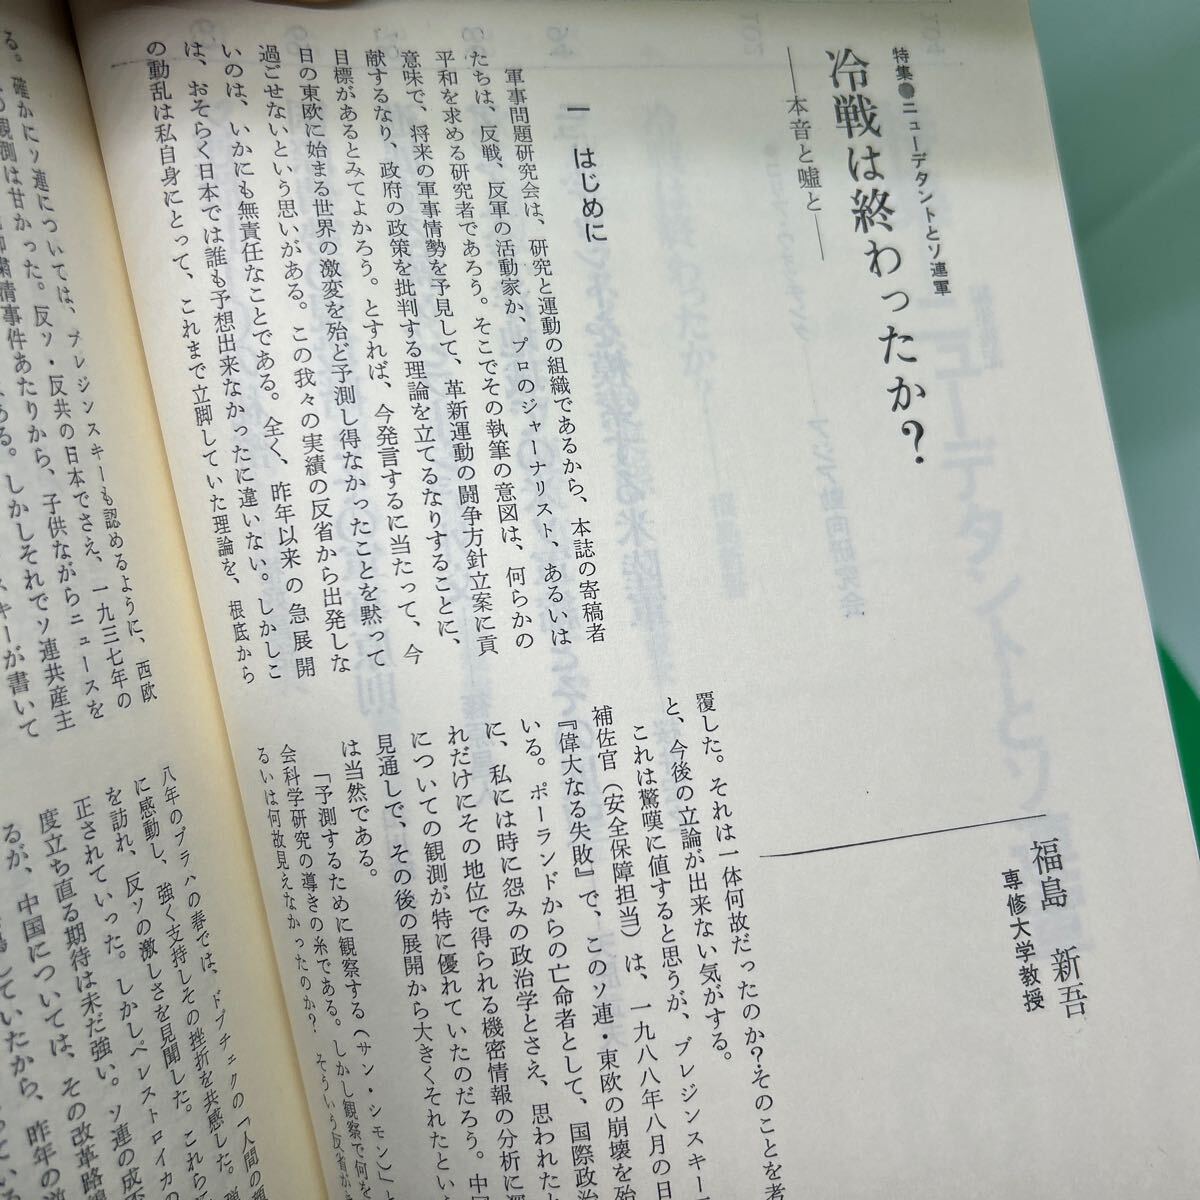 特集●ニューデタントとソ連軍
冷戦は終わったか?
――本音と嘘と――
福島 新吾
専修大学教授
一 はじめに
軍事問題研究会は、研究と運動の組織であるから、本誌の寄稿者
たちは、反戦、反軍の活動家か、プロのジャーナリスト、あるいは
平和を求める研究者であろう。そこでその執筆の意図は、何らかの
意味で、将来の軍事情勢を予見して、革新運動の闘争方針立案に貢
献するなり、政府の政策を批判する理論を立てるなりすることに、
目標があるとみてよかろう。とすれば、今発言するに当たって、今
日の東欧に始まる世界の激変を殆ど予測し得なかったことを黙って
過ごせないという思いがある。この我々の実績の反省から出発しな
いのは、いかにも無責任なことである。全く、昨年以来の急展開
は、おそらく日本では誰も予想出来なかったに違いない。しかしこ
の動乱は私自身にとって、これまで立脚していた理論を、根底から
覆した。それは一体何故だったのか?そのことを考
と、今後の立論が出来ない気がする。
これは驚嘆に値すると思うが、ブレジンスキー
補佐官(安全保障担当)は、一九八八年八月の日
『偉大なる失敗』で、このソ連・東欧の崩壊を殆
いる。ポーランドからの亡命者として、国際政治
に、私には時に怨みの政治学とさえ、思われたと
れだけにその地位で得られる機密情報の分析に
についての観測が特に優れていたのだろう。中
見通しで、その後の展開から大きくそれたとい
は当然である。
「予測するために観察する(サン・シモン)」と
会科学研究の導きの糸である。しかし観察で何を
るいは何故見えなかったのか? そういう反省が
る。確かにソ連については、ブレジンスキーも認めるように、西欧
の観測は甘かった。反ソ・反共の日本でさえ、一九三七年の
粛清事件あたりから、子供ながらニュースを
ある。しかしそれでソ連共産主
スキーが書いて
八年のプラハの春では、ドプチェクの「人間の顔
に感動し、強く支持しその挫折を共感した。
を訪れ、反ソの激しさを見聞した。これら
正されていった。しかしペレストロイカの
度立ち直る期待は未だ強い。ソ連の成否
るが、中国については、その改革路線
していたから、昨年の